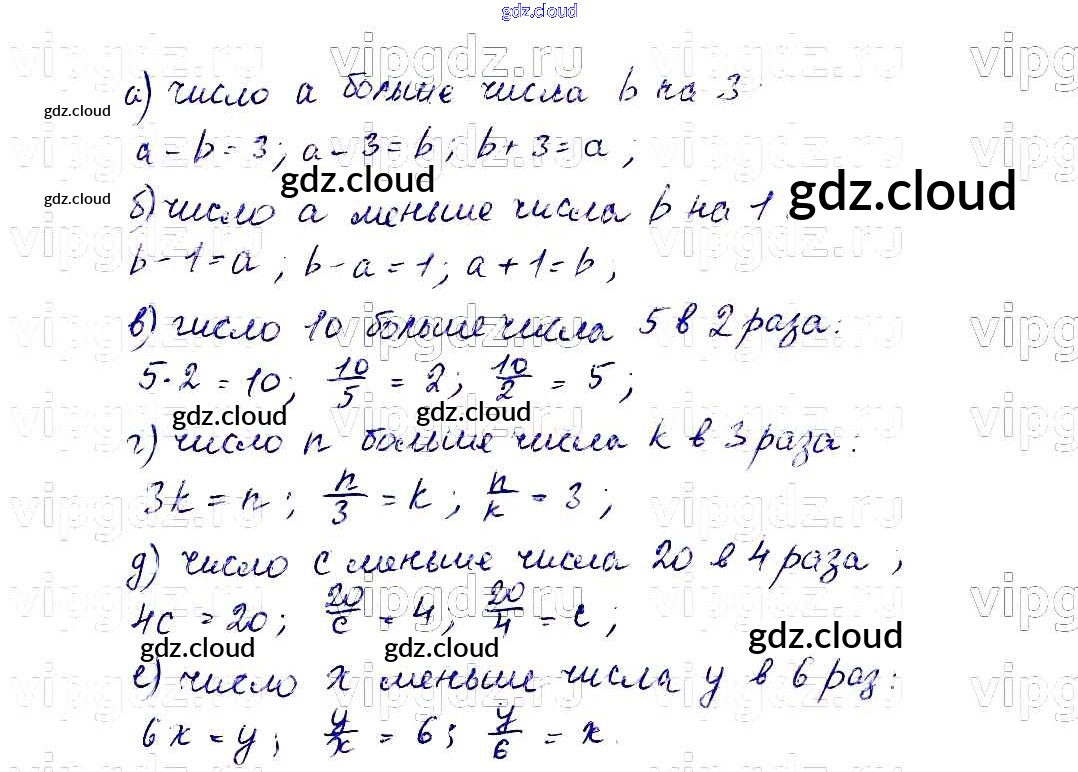 gdz.cloud
vipgdz.ru vipgdz.ru vipgdz.ru vipg
а) число a больше числа b на 3
gdz.cloud
a - b = 3; a - 3 = b; b + 3 = a;
gdz.cloud gdz.cloud
gdz.cloud
б) число a меньше числа b на 1.
b - 1 = a; b - a = 1; a + 1 = b;
в) число 10 больше числа 5 в 2 раза:
5 · 2 = 10; 10/5 = 2; 10/2 = 5;
gdz.cloud gdz.cloud
г) число n больше числа k в 3 раза:
3k = n; n/3 = k; n/k = 3;
д) число c меньше числа 20 в 4 раза;
4c = 20; 20/c = 4; 20/4 = c;
gdz.cloud gdz.cloud gdz.cloud
е) число x меньше числа y в 6 раз:
6x = y; y/x = 6; y/6 = x.